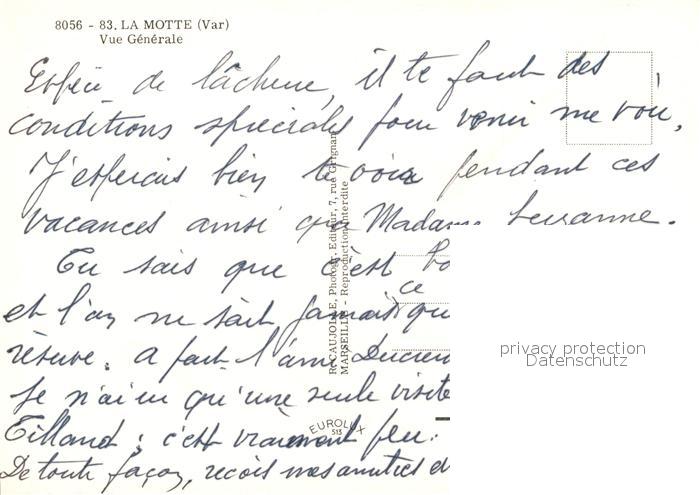 8056 - 83. LA MOTTE (Var)
Vue Générale
Espèce de lâcheur, il te faut des
conditions spéciales pour venir me voir,
J'espérais bien te voir pendant ces
vacances ainsi que Madame Suzanne.
Tu sais que c'est
ce
et l'on ne sait jamais que
réserve. A part l'ami Lucien
Je n'ai eu qu'une seule visite
c'est vraiment peu.
De toute façon, reçois mes amitiés
R. CAUJOLLE, Photogr. Editeur, 7, rue Grignan
MARSEILLE - Reproduction interdite
EUROLUX
privacy protection
Datenschutz